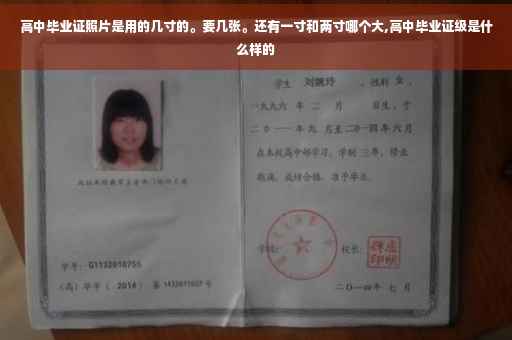 高中毕业证照片是用的几寸的。要几张。还有一寸和两寸哪个大,高中毕业证级是什
么样的
学生 刘婉玲 ,性别 女 ,
一九九六 年 二 月 日生,于
二〇一一年九 月至二〇一四年六月
在本校高中部学习,学制 三年,修业
期满,成绩合格,准予毕业。
学校: 校长:
学号: G1132010755
(高)毕字( 2014 )第 1432011027 号
二〇一四年 七 月